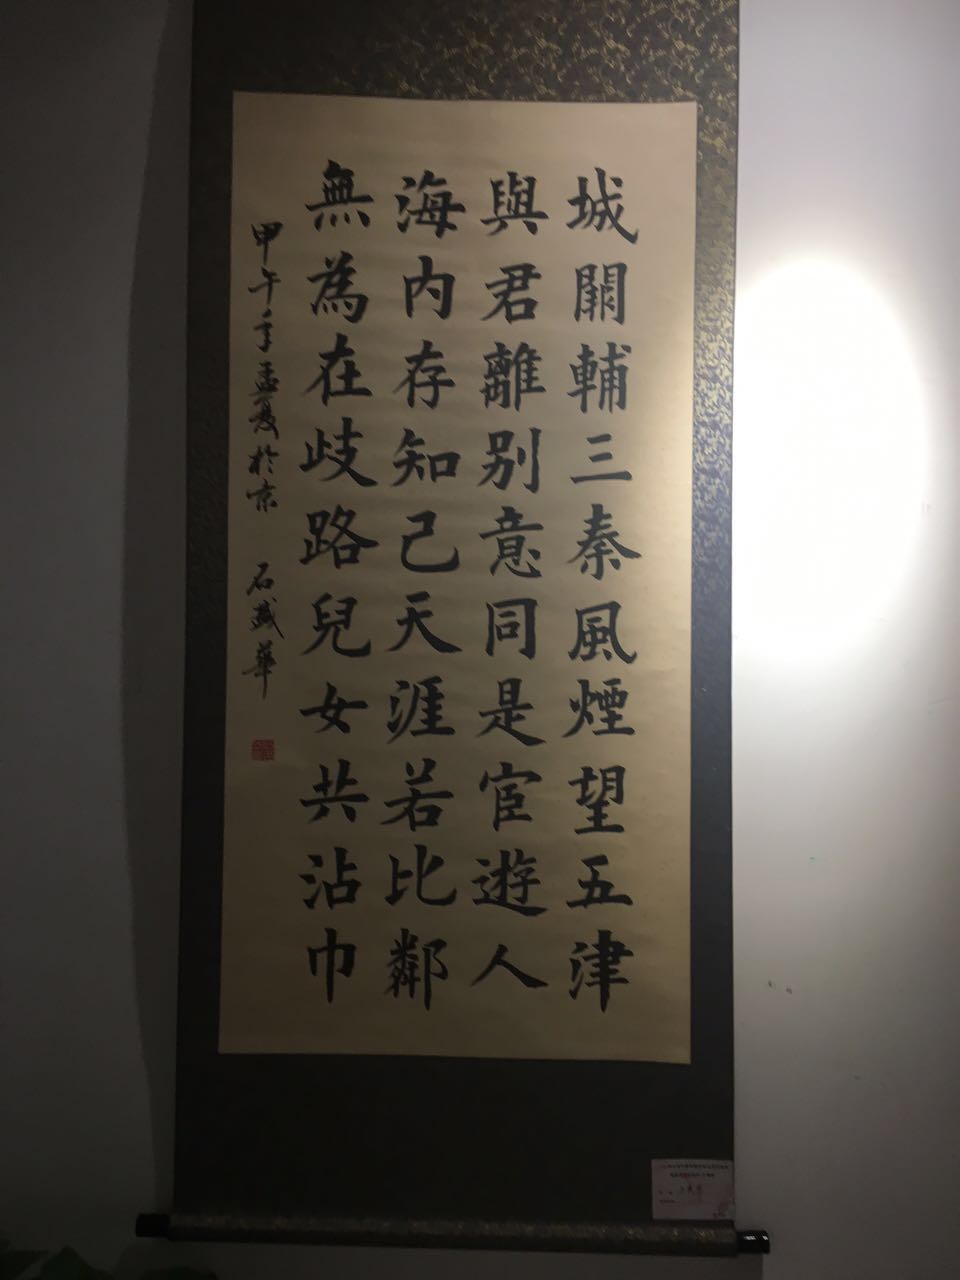 城闕輔三秦風煙望五津
與君離別意同是宦遊人
海内存知己天涯若比鄰
無為在歧路兒女共沾巾
甲午年孟夏於京 石盛華